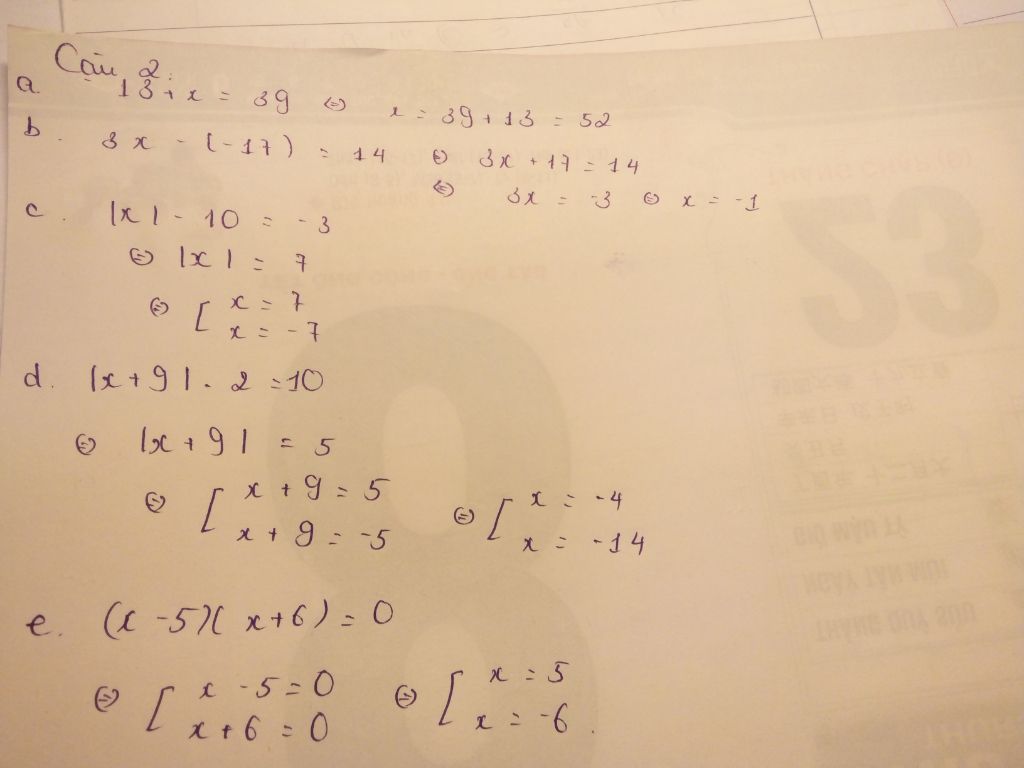 Câu 2:
a. 13 + x = 39 ⇔ x = 39 + 13 = 52
b. 3x - (-17) = 14 ⇔ 3x + 17 = 14
⇔ 3x = -3 ⇔ x = -1
c. |x| - 10 = -3
⇔ |x| = 7
⇔ [ x = 7
x = -7
d. |x + 9| . 2 = 10
⇔ |x + 9| = 5
⇔ [ x + 9 = 5 ⇔ [ x = -4
x + 9 = -5 x = -14
e. (x - 5)( x + 6) = 0
⇔ [ x - 5 = 0 ⇔ [ x = 5
x + 6 = 0 x = -6.